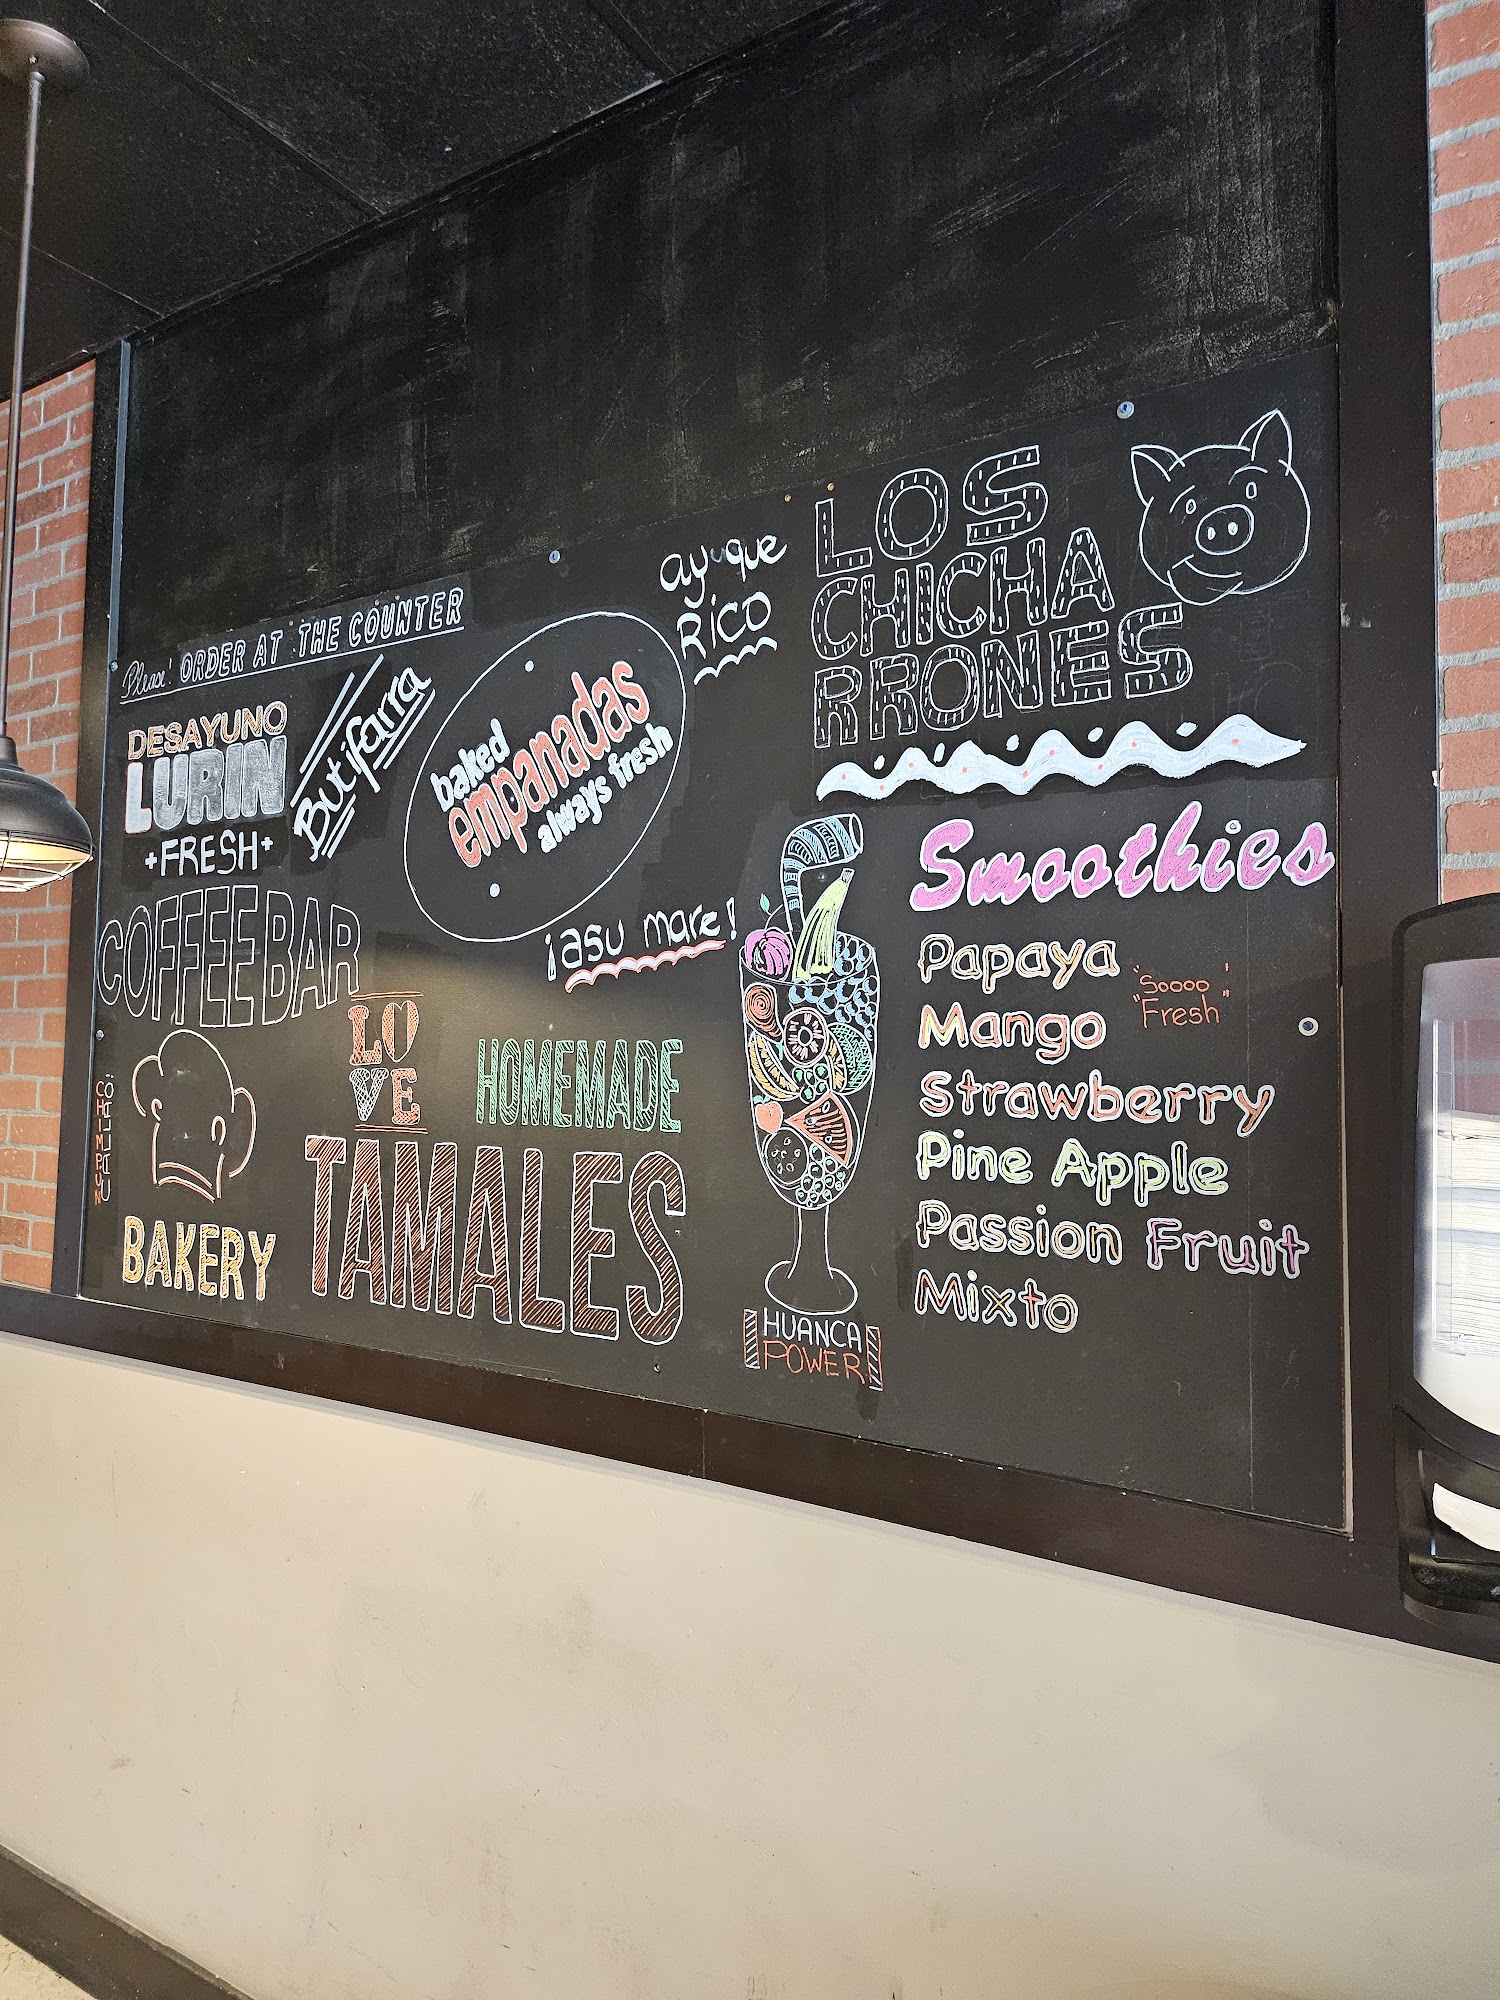 Please! ORDER AT THE COUNTER
DESAYUNO
LURIN
+FRESH+
Butifarra
baked
empanadas
always fresh
ayuque
RICO
LOS
CHICHA
RRONES
COFFEE BAR
¡asu mare!
LO
VE
HOMEMADE
TAMALES
CHIMPUN
CALLAO!
BAKERY
Smoothies
Papaya
Mango
"Soooo"
"Fresh"
Strawberry
Pine Apple
Passion Fruit
Mixto
HUANCA
POWER